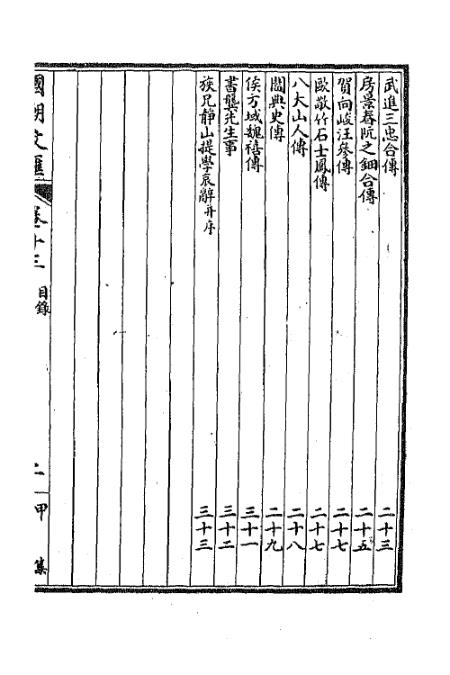 武進三忠合傳 二十三
房景春阮之鈿合傳 二十五
賀向峻汪參傳 二十七
歐敬竹石士鳳傳 二十七
八大山人傳 二十八
閻典史傳 二十九
侯方域魏禧傳 三十一
書龔先生事 三十二
族兄靜山提學哀辭并序 三十三
國朝文匯 卷十三 目錄 二 甲集